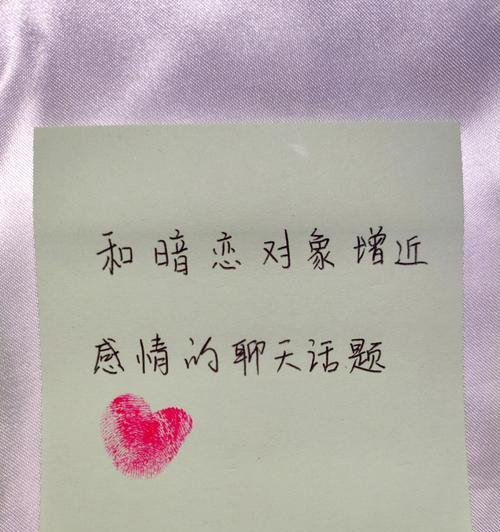 和暗恋对象增近
感情的聊天话题